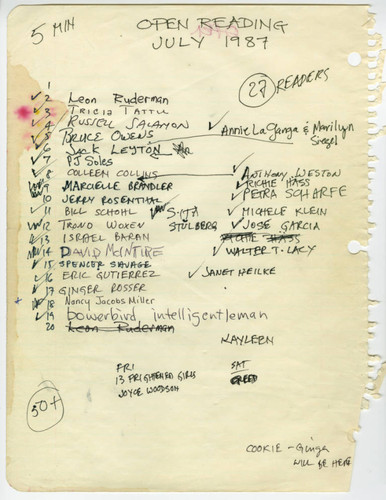 5 MIN
OPEN READING
JULY 1987
27 READERS
1
2 Leon Ruderman
3 TRICIA TATTU
4 RUSSELL SALAMON
5 BRUCE OWENS
6 JACK LEYTON
7 PJ Soles
8 COLLEEN COLLINS
9 MARCIELLE BRANDLER
10 JERRY ROSENTHAL
11 BILL SCHOHL
12 TROND WOXEN
13 ISRAEL BARAN
14 DAVID McINTIRE
15 SPENCER SAVAGE
16 ERIC GUTIERREZ
17 GINGER ROSSER
18 Nancy Jacobs Miller
19 bowerbird, intelligentleman
20 Leon Ruderman
Annie LaGanga & Marilyn
Siegel
ANTHONY WESTON
RICHIE HASS
PETRA SCHARFE
MICHELE KLEIN
STULBERG
JOSE GARCIA
RICHIE HASS
WALTER T. LACY
JANET HEILKE
KAYLEEN
FRI
13 FRIGHTENED GIRLS
JOYCE WOODSON
SAT
CREED
50+
COOKIE - Ginger
WILL BE HERE